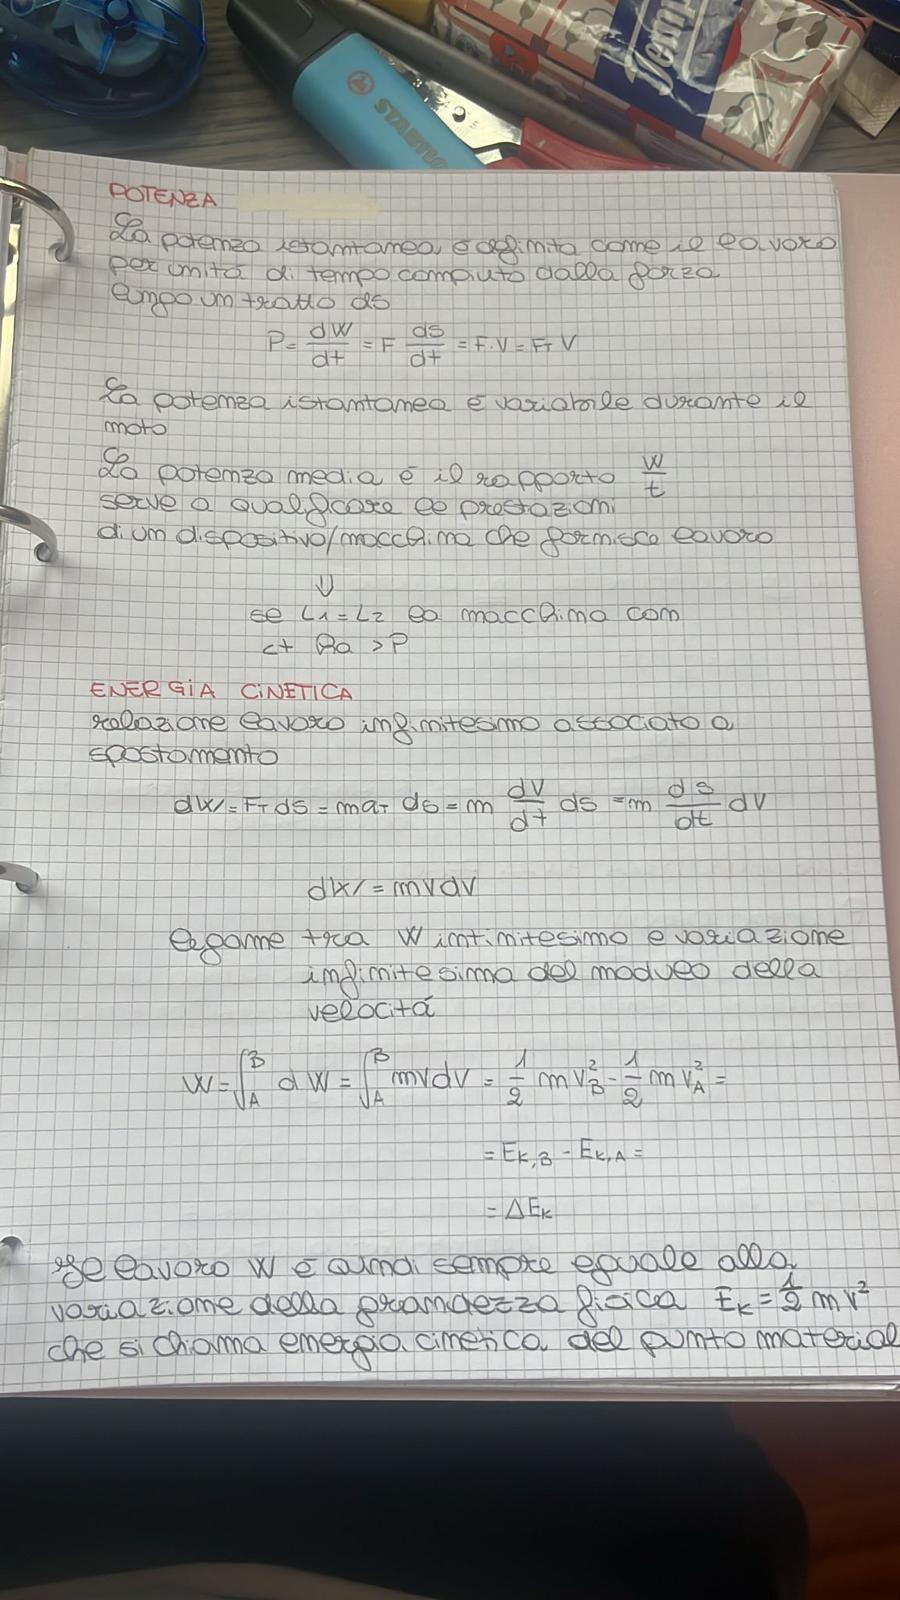 STABILO
POTENZA
La potenza istantanea è definita come il lavoro
per unitá di tempo compiuto dalla forza
lungo un tratto ds
P = dW/dt = F ds/dt = F·V = F_T V
La potenza istantanea è variabile durante il
moto
La potenza media é il rapporto W/t
serve a qualificare le prestazioni
di un dispositivo/macchina che fornisce lavoro
⇓
se L1 = L2 la macchina con
<t ha >P
ENERGIA CINETICA
relazione lavoro infinitesimo associato a
spostamento
dW = F_T ds = ma_T ds = m dv/dt ds = m ds/dt dv
dW = mvdv
legame tra W infinitesimo e variazione
infinitesima del modulo della
velocitá
W = ∫_A^B dW = ∫_A^B mvdv = 1/2 m v_B^2 - 1/2 m v_A^2 =
= E_K,B - E_K,A =
= ΔE_K
Il lavoro W é quindi sempre eguale alla
variazione della grandezza fisica E_K = 1/2 mv^2
che si chiama energia cinetica del punto material